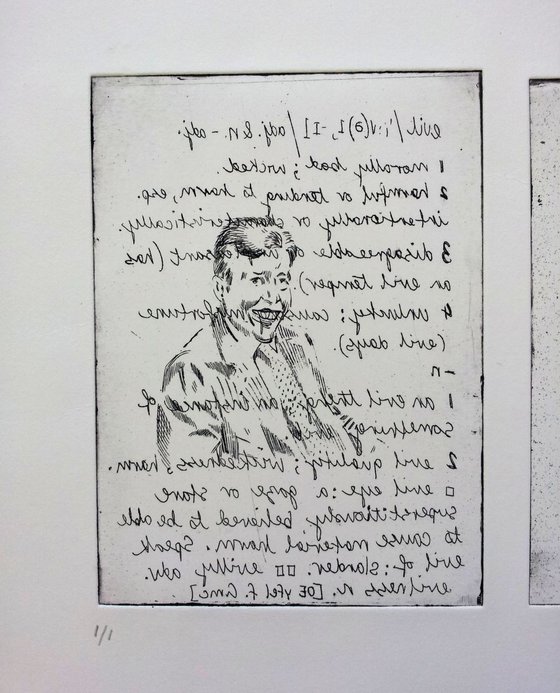 evil /'i:v(ə)l, -ɪl/ adj. & n. - adj.
1 morally bad; wicked.
2 harmful or tending to harm, esp.
intentionally or characteristically
3 disagreeable or unpleasant (has
an evil temper).
4 unlucky; causing misfortune
(evil days).
- n
1 an evil thing; an instance of
something evil.
2 evil quality; wickedness, harm.
□ evil eye: a gaze or stare
superstitiously believed to be able
to cause material harm. Speak
evil of: slander. □□ evilly adv.
evilness n. [OE yfel f. Gmc]
1/1